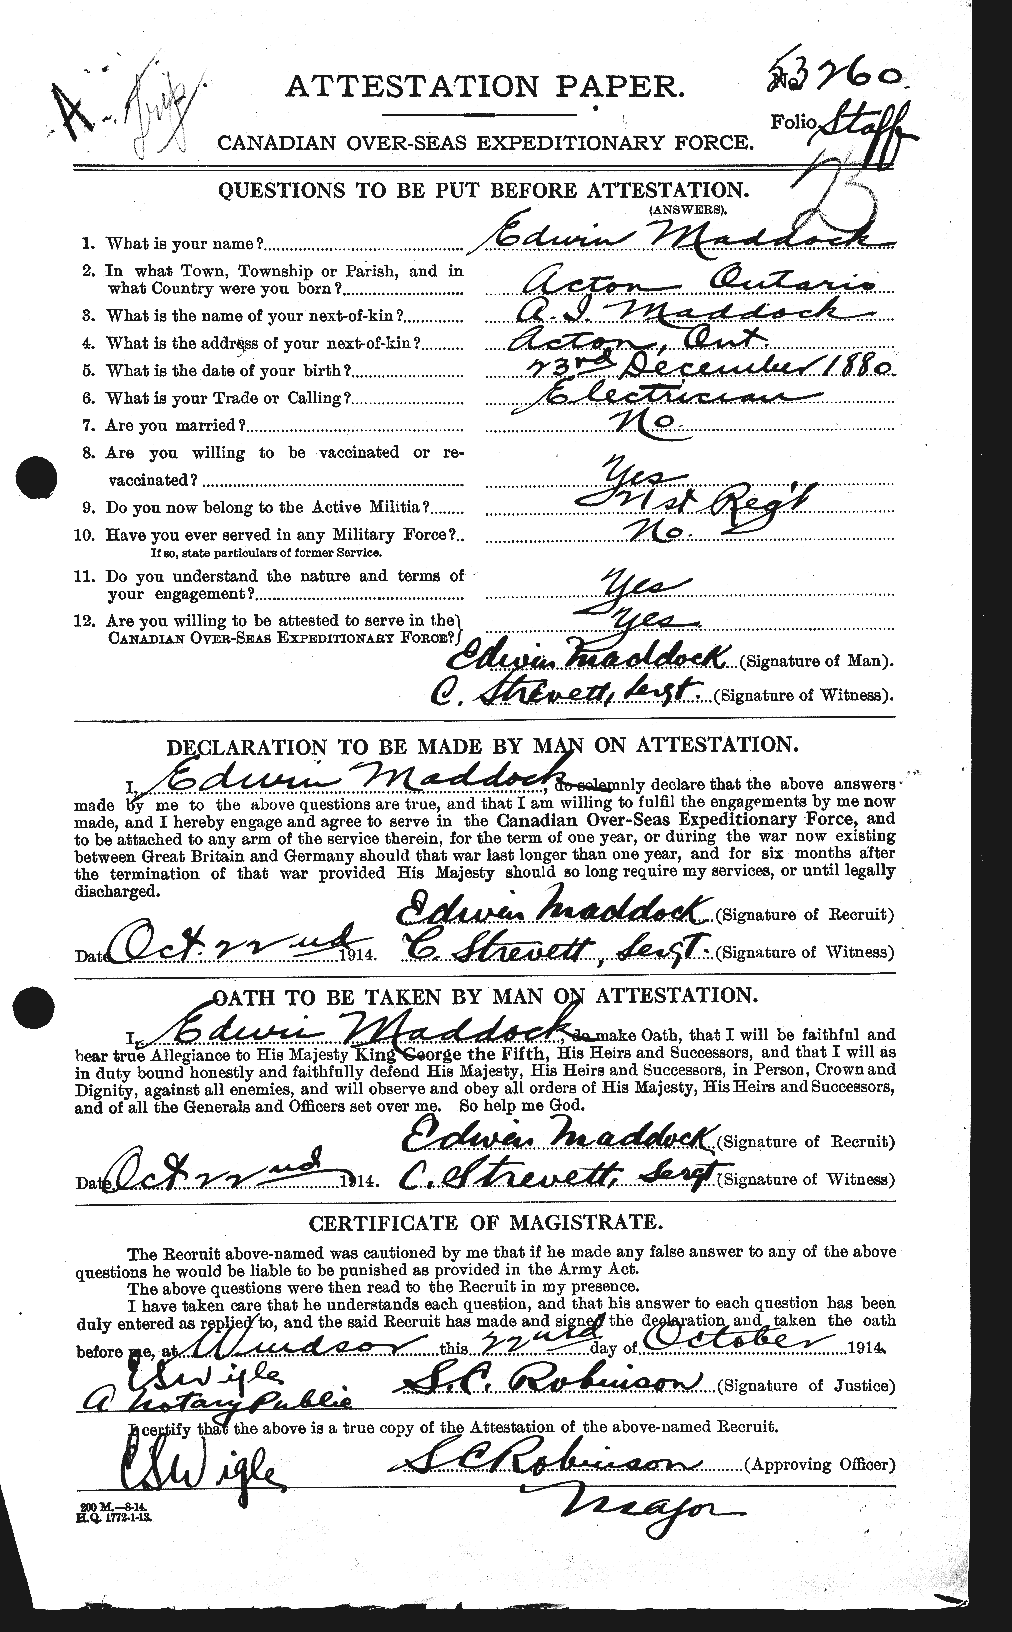 A
Trip.
ATTESTATION PAPER.
No. 53260.
Folio Staff
CANADIAN OVER-SEAS EXPEDITIONARY FORCE.
QUESTIONS TO BE PUT BEFORE ATTESTATION.
(ANSWERS).
1. What is your name? Edwin Maddock
2. In what Town, Township or Parish, and in
what Country were you born? Acton Ontario
3. What is the name of your next-of-kin? A. I. Maddock
4. What is the address of your next-of-kin? Acton, Ont.
5. What is the date of your birth? 23rd December 1880.
6. What is your Trade or Calling? Electrician
7. Are you married? No.
8. Are you willing to be vaccinated or re-
vaccinated? Yes
9. Do you now belong to the Active Militia? 21st Reg't
10. Have you ever served in any Military Force? No.
If so, state particulars of former Service.
11. Do you understand the nature and terms of
your engagement? Yes
12. Are you willing to be attested to serve in the
CANADIAN OVER-SEAS EXPEDITIONARY FORCE? Yes.
Edwin Maddock (Signature of Man).
C. Strevett, Sergt. (Signature of Witness).
DECLARATION TO BE MADE BY MAN ON ATTESTATION.
I, Edwin Maddock, do solemnly declare that the above answers
made by me to the above questions are true, and that I am willing to fulfil the engagements by me now
made, and I hereby engage and agree to serve in the Canadian Over-Seas Expeditionary Force, and
to be attached to any arm of the service therein, for the term of one year, or during the war now existing
between Great Britain and Germany should that war last longer than one year, and for six months after
the termination of that war provided His Majesty should so long require my services, or until legally
discharged.
Edwin Maddock (Signature of Recruit)
Date Oct. 22nd 1914. C. Strevett, Sergt. (Signature of Witness)
OATH TO BE TAKEN BY MAN ON ATTESTATION.
I, Edwin Maddock, do make Oath, that I will be faithful and
bear true Allegiance to His Majesty King George the Fifth, His Heirs and Successors, and that I will as
in duty bound honestly and faithfully defend His Majesty, His Heirs and Successors, in Person, Crown and
Dignity, against all enemies, and will observe and obey all orders of His Majesty, His Heirs and Successors,
and of all the Generals and Officers set over me. So help me God.
Edwin Maddock (Signature of Recruit)
Date Oct 22nd 1914. C. Strevett, Sergt. (Signature of Witness)
CERTIFICATE OF MAGISTRATE.
The Recruit above-named was cautioned by me that if he made any false answer to any of the above
questions he would be liable to be punished as provided in the Army Act.
The above questions were then read to the Recruit in my presence.
I have taken care that he understands each question, and that his answer to each question has been
duly entered as replied to, and the said Recruit has made and signed the declaration and taken the oath
before me, at Windsor this 22nd day of October 1914.
ES Wigle S. C. Robinson (Signature of Justice)
A Notary Public
I certify that the above is a true copy of the Attestation of the above-named Recruit.
ES Wigle S C Robinson (Approving Officer)
Major
200 M.—8-14.
H.Q. 1772-1-13.